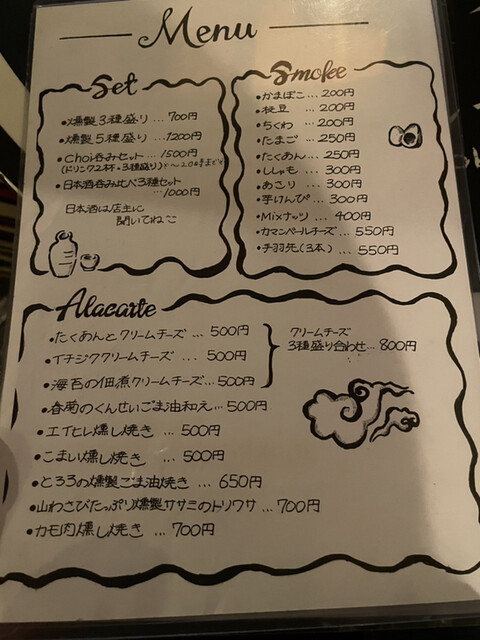 Menu
Set
•燻製3種盛り…700円
•燻製5種盛り…1200円
•Choi呑みセット…1500円
(ドリンク2杯・3種盛り)
•日本酒呑み比べ3種セット
…1000円
日本酒は店主に
聞いてねこ
Smokee
•かまぼこ…200円
•枝豆…200円
•ちくわ…200円
•たまご…250円
•たくあん…250円
•ししゃも…300円
•あさり…300円
•芋けんぴ…300円
•Mixナッツ…400円
•カマンベールチーズ…550円
•手羽先(3本)…550円
Alacarte
•たくあんとクリームチーズ…500円
•イチジククリームチーズ…500円
•海苔の佃煮クリームチーズ…500円
クリームチーズ
3種盛り合わせ…800円
•春菊のくんせいごま油和え…500円
•エイヒレ燻し焼き…500円
•こまい燻し焼き…500円
•とろろの燻製ごま油焼き…650円
•山わさびたっぷり燻製ササミのトリワサ…700円
•カモ肉燻し焼き…700円